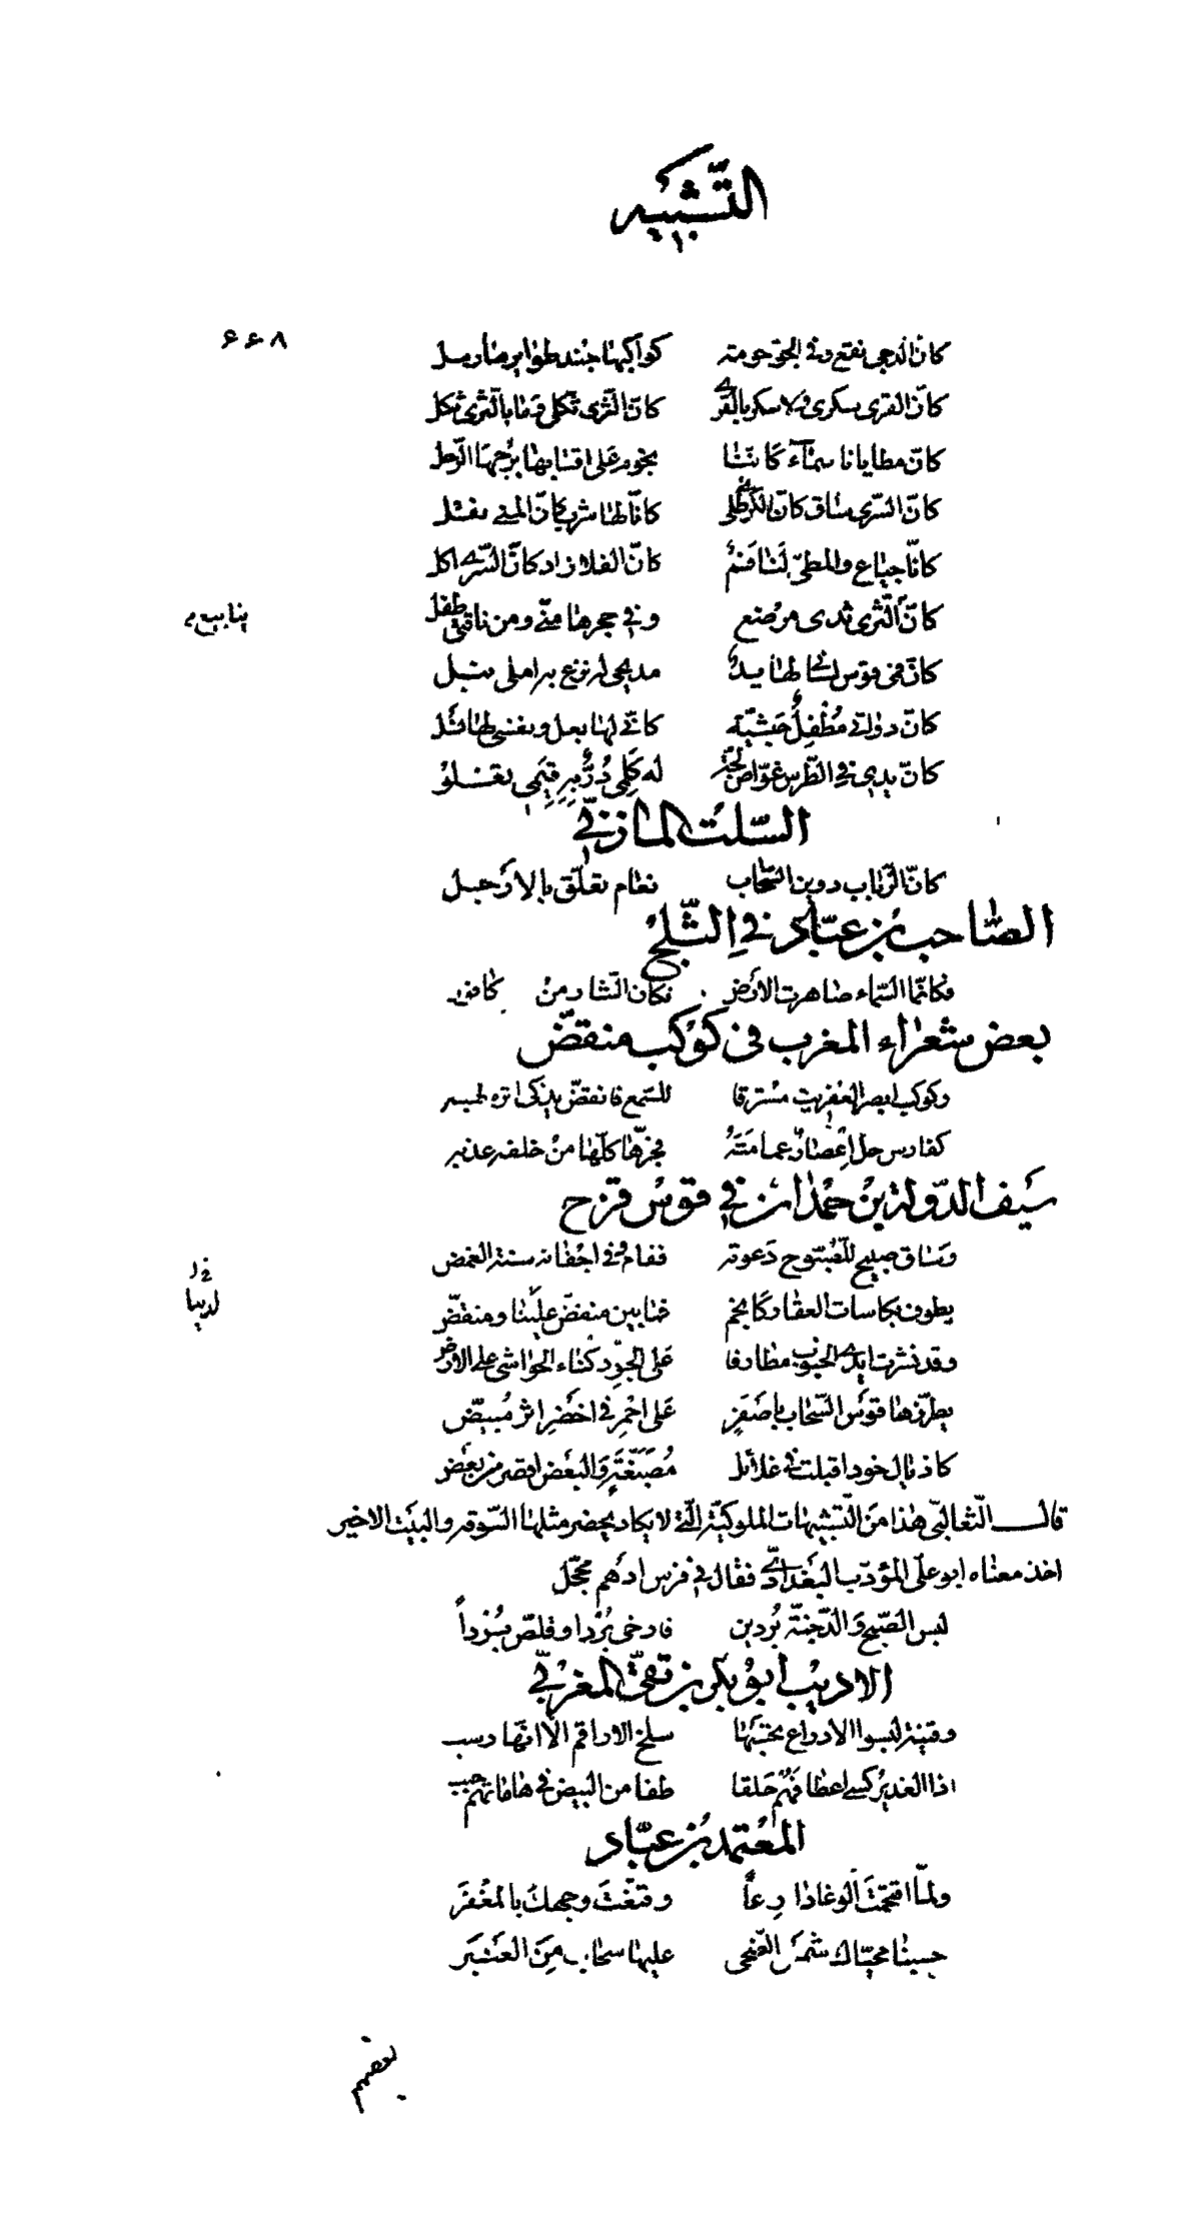 التشبيه
٦٦٨
كانّ الدجى نقع وفى الجوّ حومة كواكبها جند طوايرها رسل
كانّ القرى سكرى ولا سكر بالقرى كانّ الثرى ثكلى وما بالثرى ثكل
كانّ مطايانا سماء كاننا نجوم على اقتابها برجها الرحل
كانّ السّرى ساق كانّ الكرى طلى كانّا لها شرب كانّ المنى نقل
كانّا جياع والمطىّ لنا فم كانّ الفلا زاد كانّ السّرى اكل
كانّ الثرى ثدى مرضع وفى حجرها منّى ومن ناقتى طفل
ينابيع
كانّ فمى قوس لسانى لها يد مديحى له نزع به املى نبل
كانّ دواتى مُطْفِل حبشيّة كانّى لها بعل ونقسى لها نسل
كانّ يدى فى الطّرس غوّاص لجّة له كَلِمى دُرّ به قِيَمى تغلو
السّلت المازنى
كانّ الرّباب دوين السّحاب نعام تعلّق بالارجل
الصّاحب بن عبّاد فى الثّلج
وكانّما السّماء صاهرت الارض فكان النثار من كافور
بعض شعراء المغرب فى كوكب منقضّ
وكوكب ابصر العفريت مسترقا للسّمع فانقضّ يذكى اثره لهبه
كفارس حل اعصار عمامته فجرّها كلّها من خلفه عذبه
سيف الدّولة بن حمدان فى قوس قزح
وساق صبيح للصّبوح دعوته فقام وفى اجفانه سنة الغمض
يطوف بكاسات العقار كانجم فما بين منفضّ علينا ومنقضّ
وقد نشرت ايدى الجنوب مطارفا على الجوّ دكناء الحواشى على الارض
يطرّزها قوس السّحاب باصفر على احمر فى اخضر اثر مبيضّ
كاذيال خود اقبلت فى غلائل مصبّغة والبعض اقصر من بعض
قال الثّعالبىّ هذا من التّشبيهات الملوكيّة الّتى لا يكاد يحضر مثلها السّوقه والبيت الاخير
اخذ معناه ابو على المؤدّب البغدادىّ فقال فى فرس ادهم محجّل
لبس الصّبح والدّجنّة بُردين فارخى بُرْدا وقلّص بُرْداً
الاديب ابو بكر بن تقىّ المغربىّ
وفتية لبسوا الادراع تحسبها سلخ الاراقم الّا انّها رسب
اذا الغدير كسى اعطافهم حلقا طفا من البيض فى هاماتهم حبب
المعتمد بن عبّاد
ولمّا اقتحمت الوغا دارعاً وقنّعت وجهك بالمغفر
حسبنا محيّاك شمس الضّحى عليها سحاب من العنبر
بعضهم